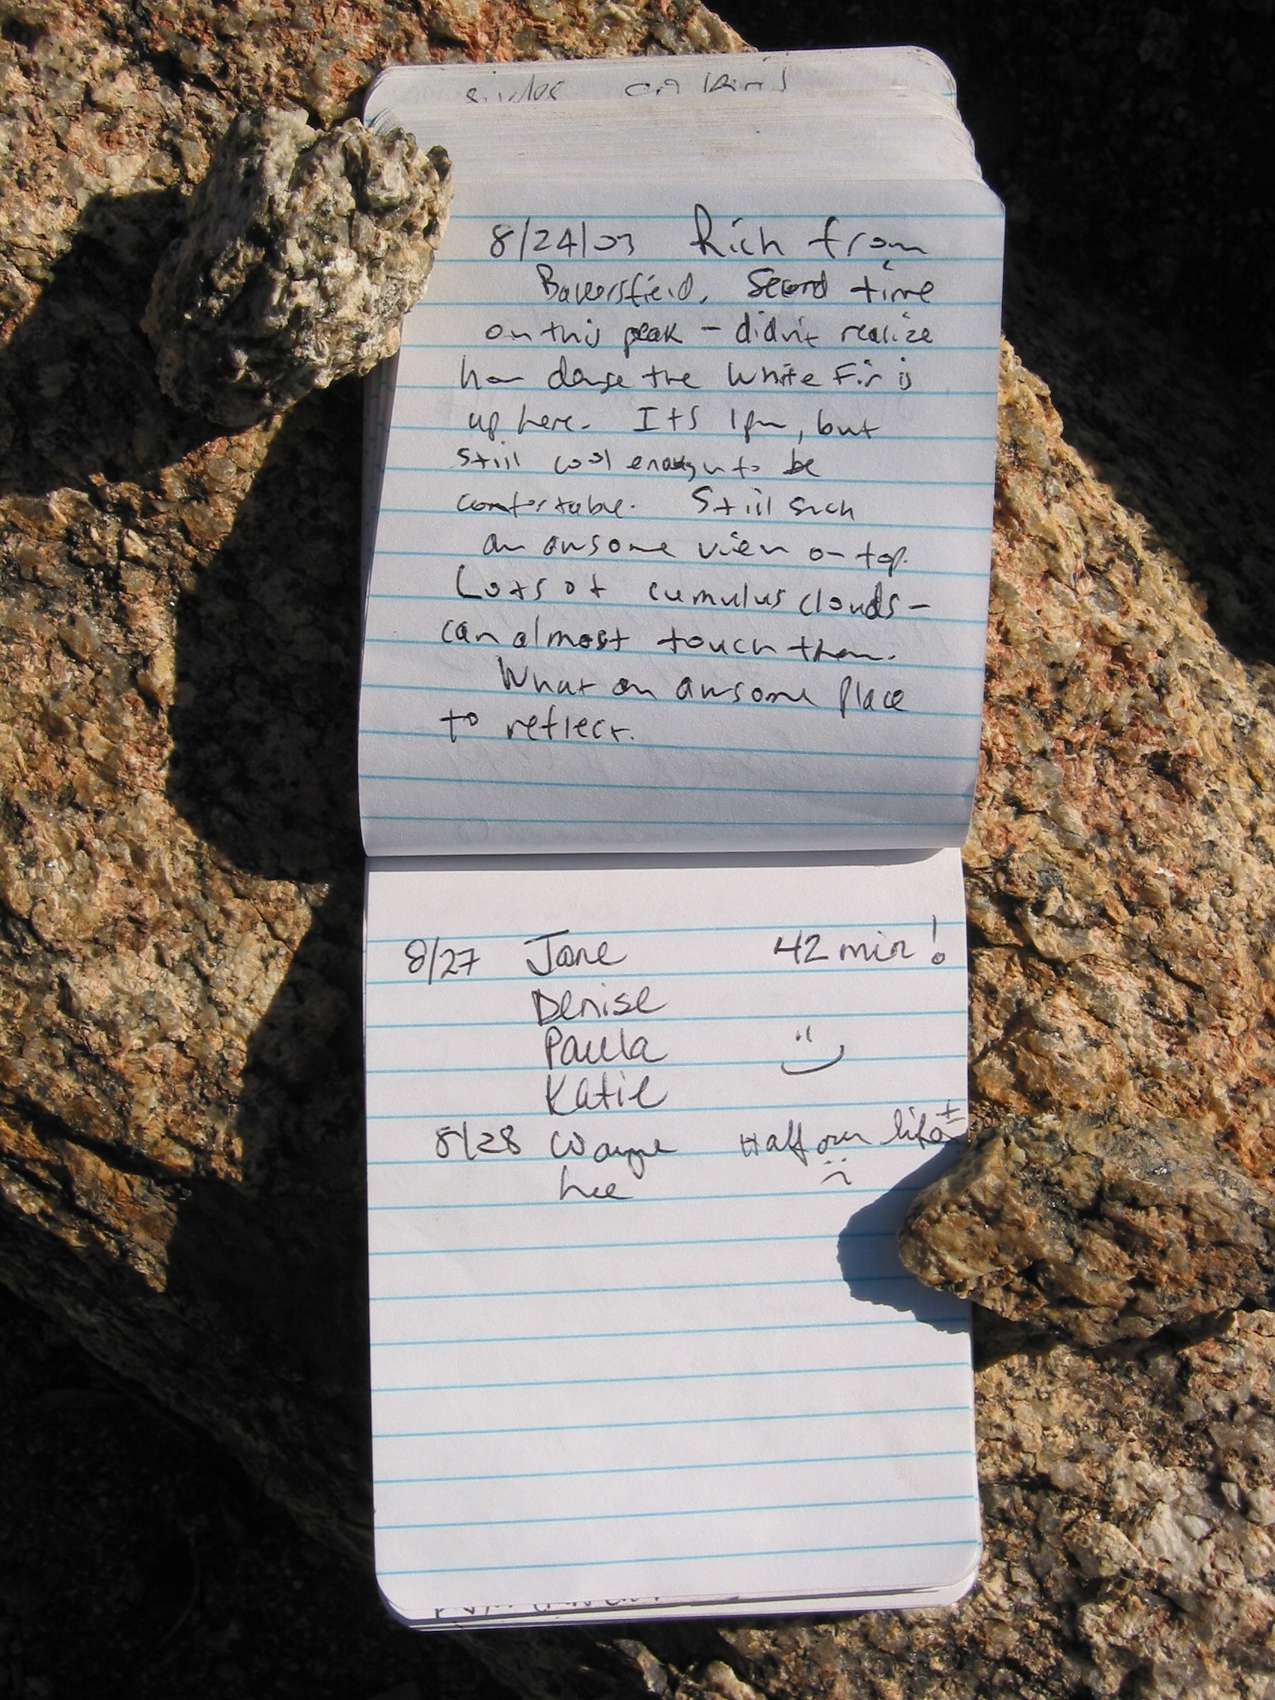 8/24/03 Rich from
Bakersfield. Second time
on this peak – didn't realize
how dense the White Fir is
up here. Its 1pm, but
still cool enough to be
comfortable. Still such
an awsome view on top.
Lots of cumulus clouds –
can almost touch them.
What an awsome place
to reflect.
8/27 Jane 42 min!
Denise
Paula :)
Katie
8/28 Wayne Half our life ±
Lee :(